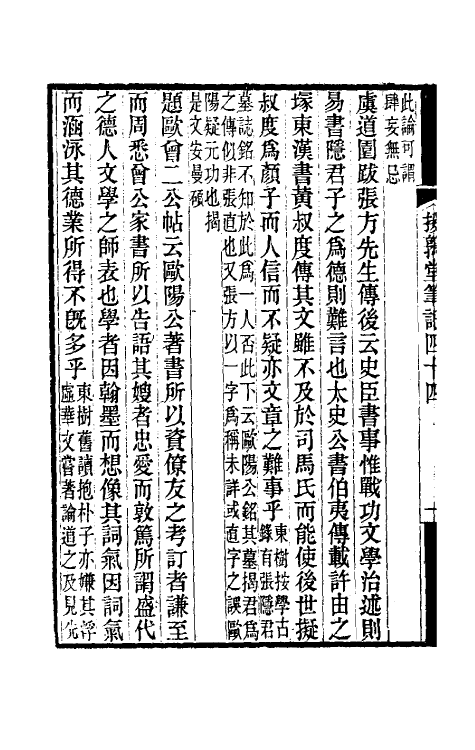 援鶉堂筆記四十四
此論可謂
肆妄無忌
虞道園跋張方先生傳後云史臣書事惟戰功文學治述則
易書隱君子之爲德則難言也太史公書伯夷傳載許由之
塚東漢書黃叔度傳其文雖不及於司馬氏而能使後世擬
叔度爲顏子而人信而不疑亦文章之難事乎
東樹按學古
錄有張隱君
墓誌銘不知於此爲一人否此下云歐陽公銘其墓揭君爲
之傳似非張直也又張方以一字爲稱未詳或直字之誤歐
陽疑元功也揭
是文安曼碩
題歐曾二公帖云歐陽公著書所以資僚友之考訂者謙至
而周悉曾公家書所以告語其嫂者忠愛而敦篤所謂盛代
之德人文學之師表也學者因翰墨而想像其詞氣因詞氣
而涵泳其德業所得不旣多乎
東樹舊讀抱朴子亦嫌其浮
虛華文嘗著論道之及見先